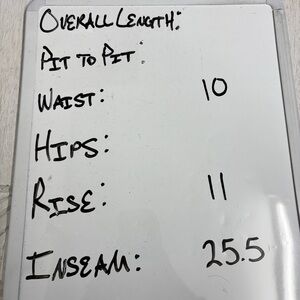 Overall Length:
Pit to Pit:
Waist: 10
Hips:
Rise: 11
Inseam: 25.5